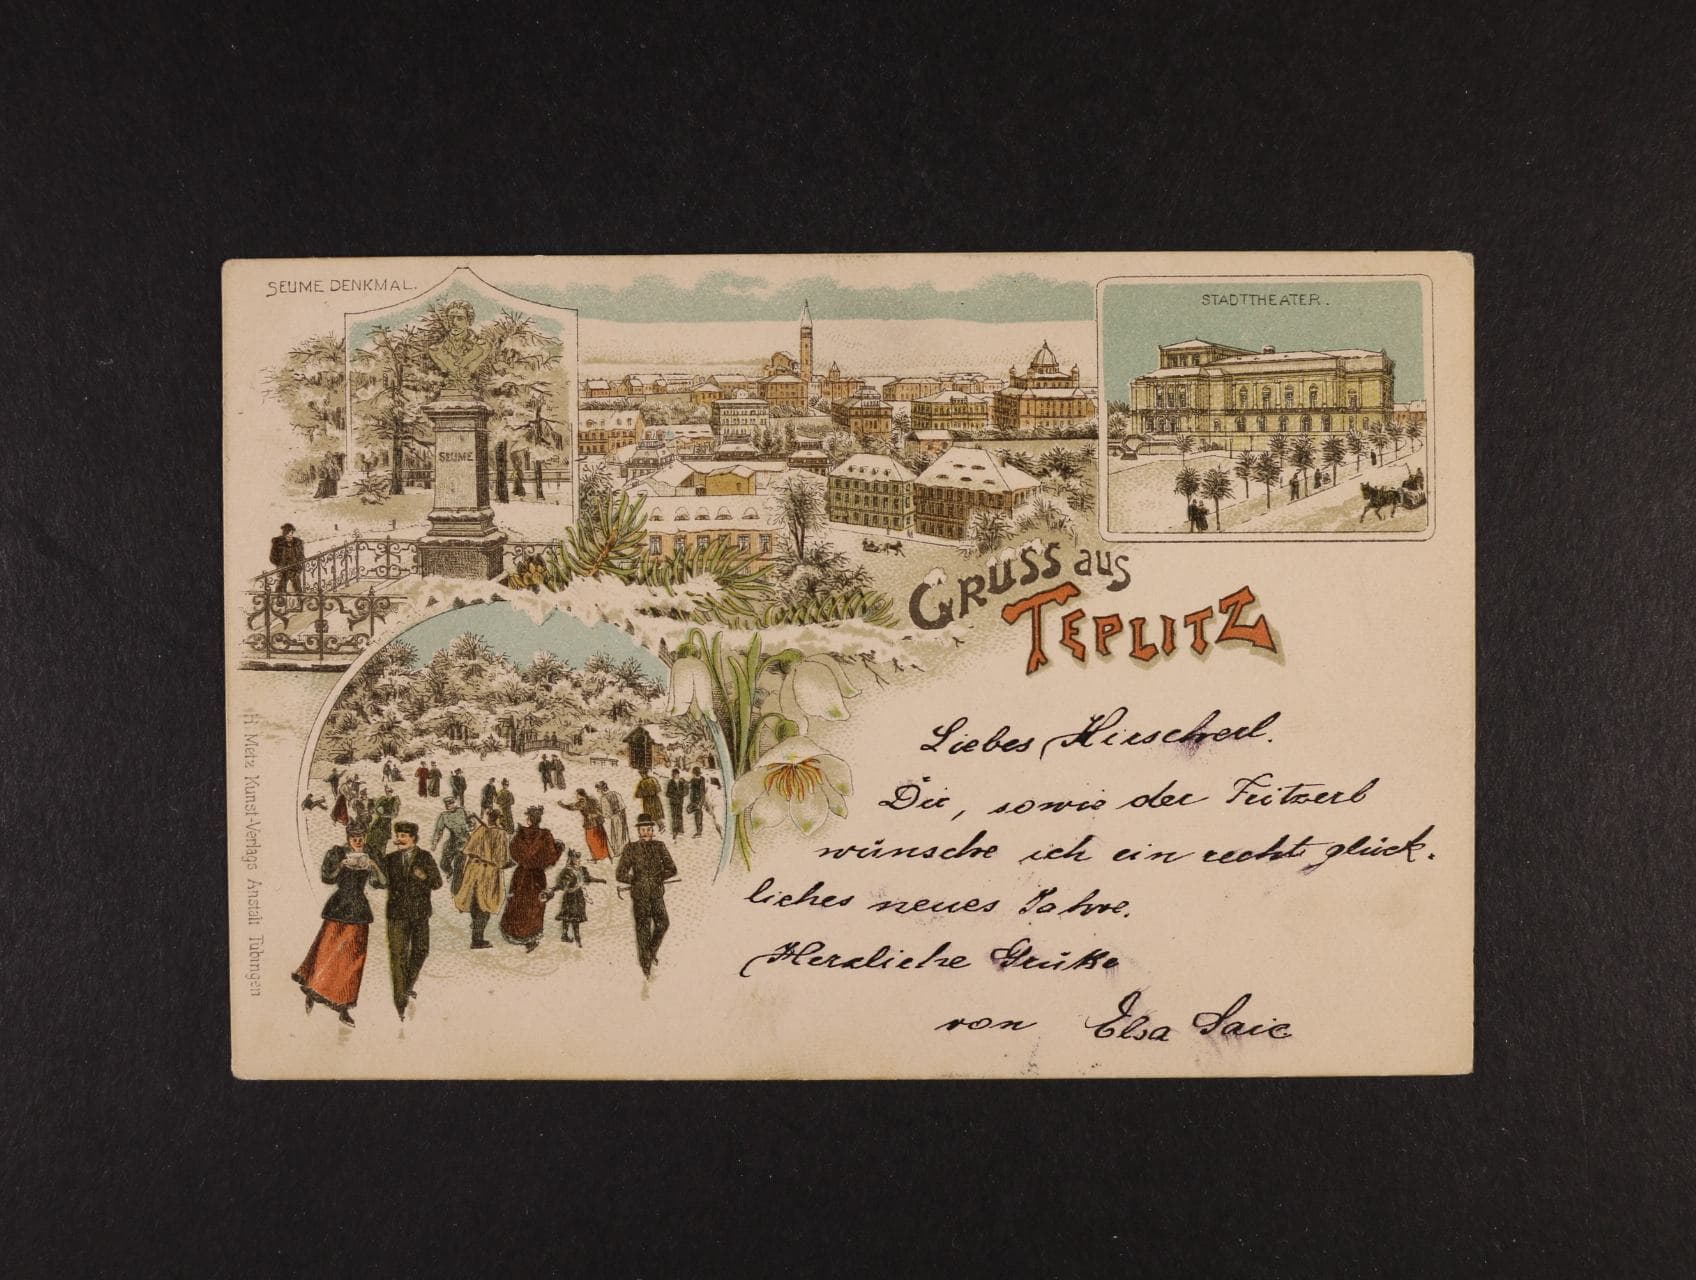 SEUME DENKMAL.
STADTTHEATER.
SEUME
GRUSS aus
TEPLITZ
Liebes Hirscherl.
Dir, sowie der Fritzerl
wünsche ich ein recht glück-
liches neues Jahre.
Herzliche Grüße
von Elsa
H Metz Kunst-Verlags Anstalt Tübingen